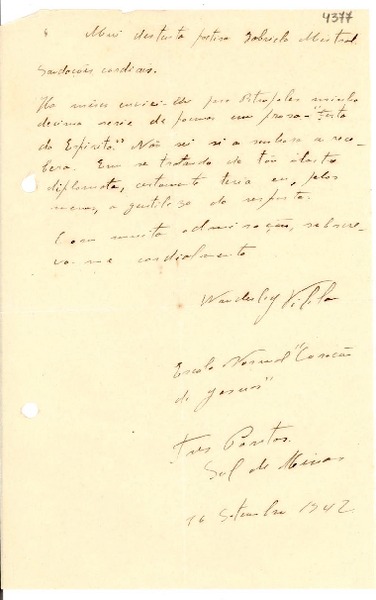 4377
Mui distinta poetisa Gabriela Mistral
Saudações cordiais.
Ha meses enviei-lhe pra Petropoles minha
decima serie de poemas em prosa - "Festa
do Espirito." Não sei si a senhora a rece-
bera. Em se tratando de tão
diplomata, certamente teria eu, pelos
menos, a gentileza da resposta.
Com muita admiração, subscre-
vo-me cordialmente
Wanderley Vilela
Escola Normal "Coração
de Jesus"
Tres Pontas.
Sul de Minas
16 Setembro 1942.